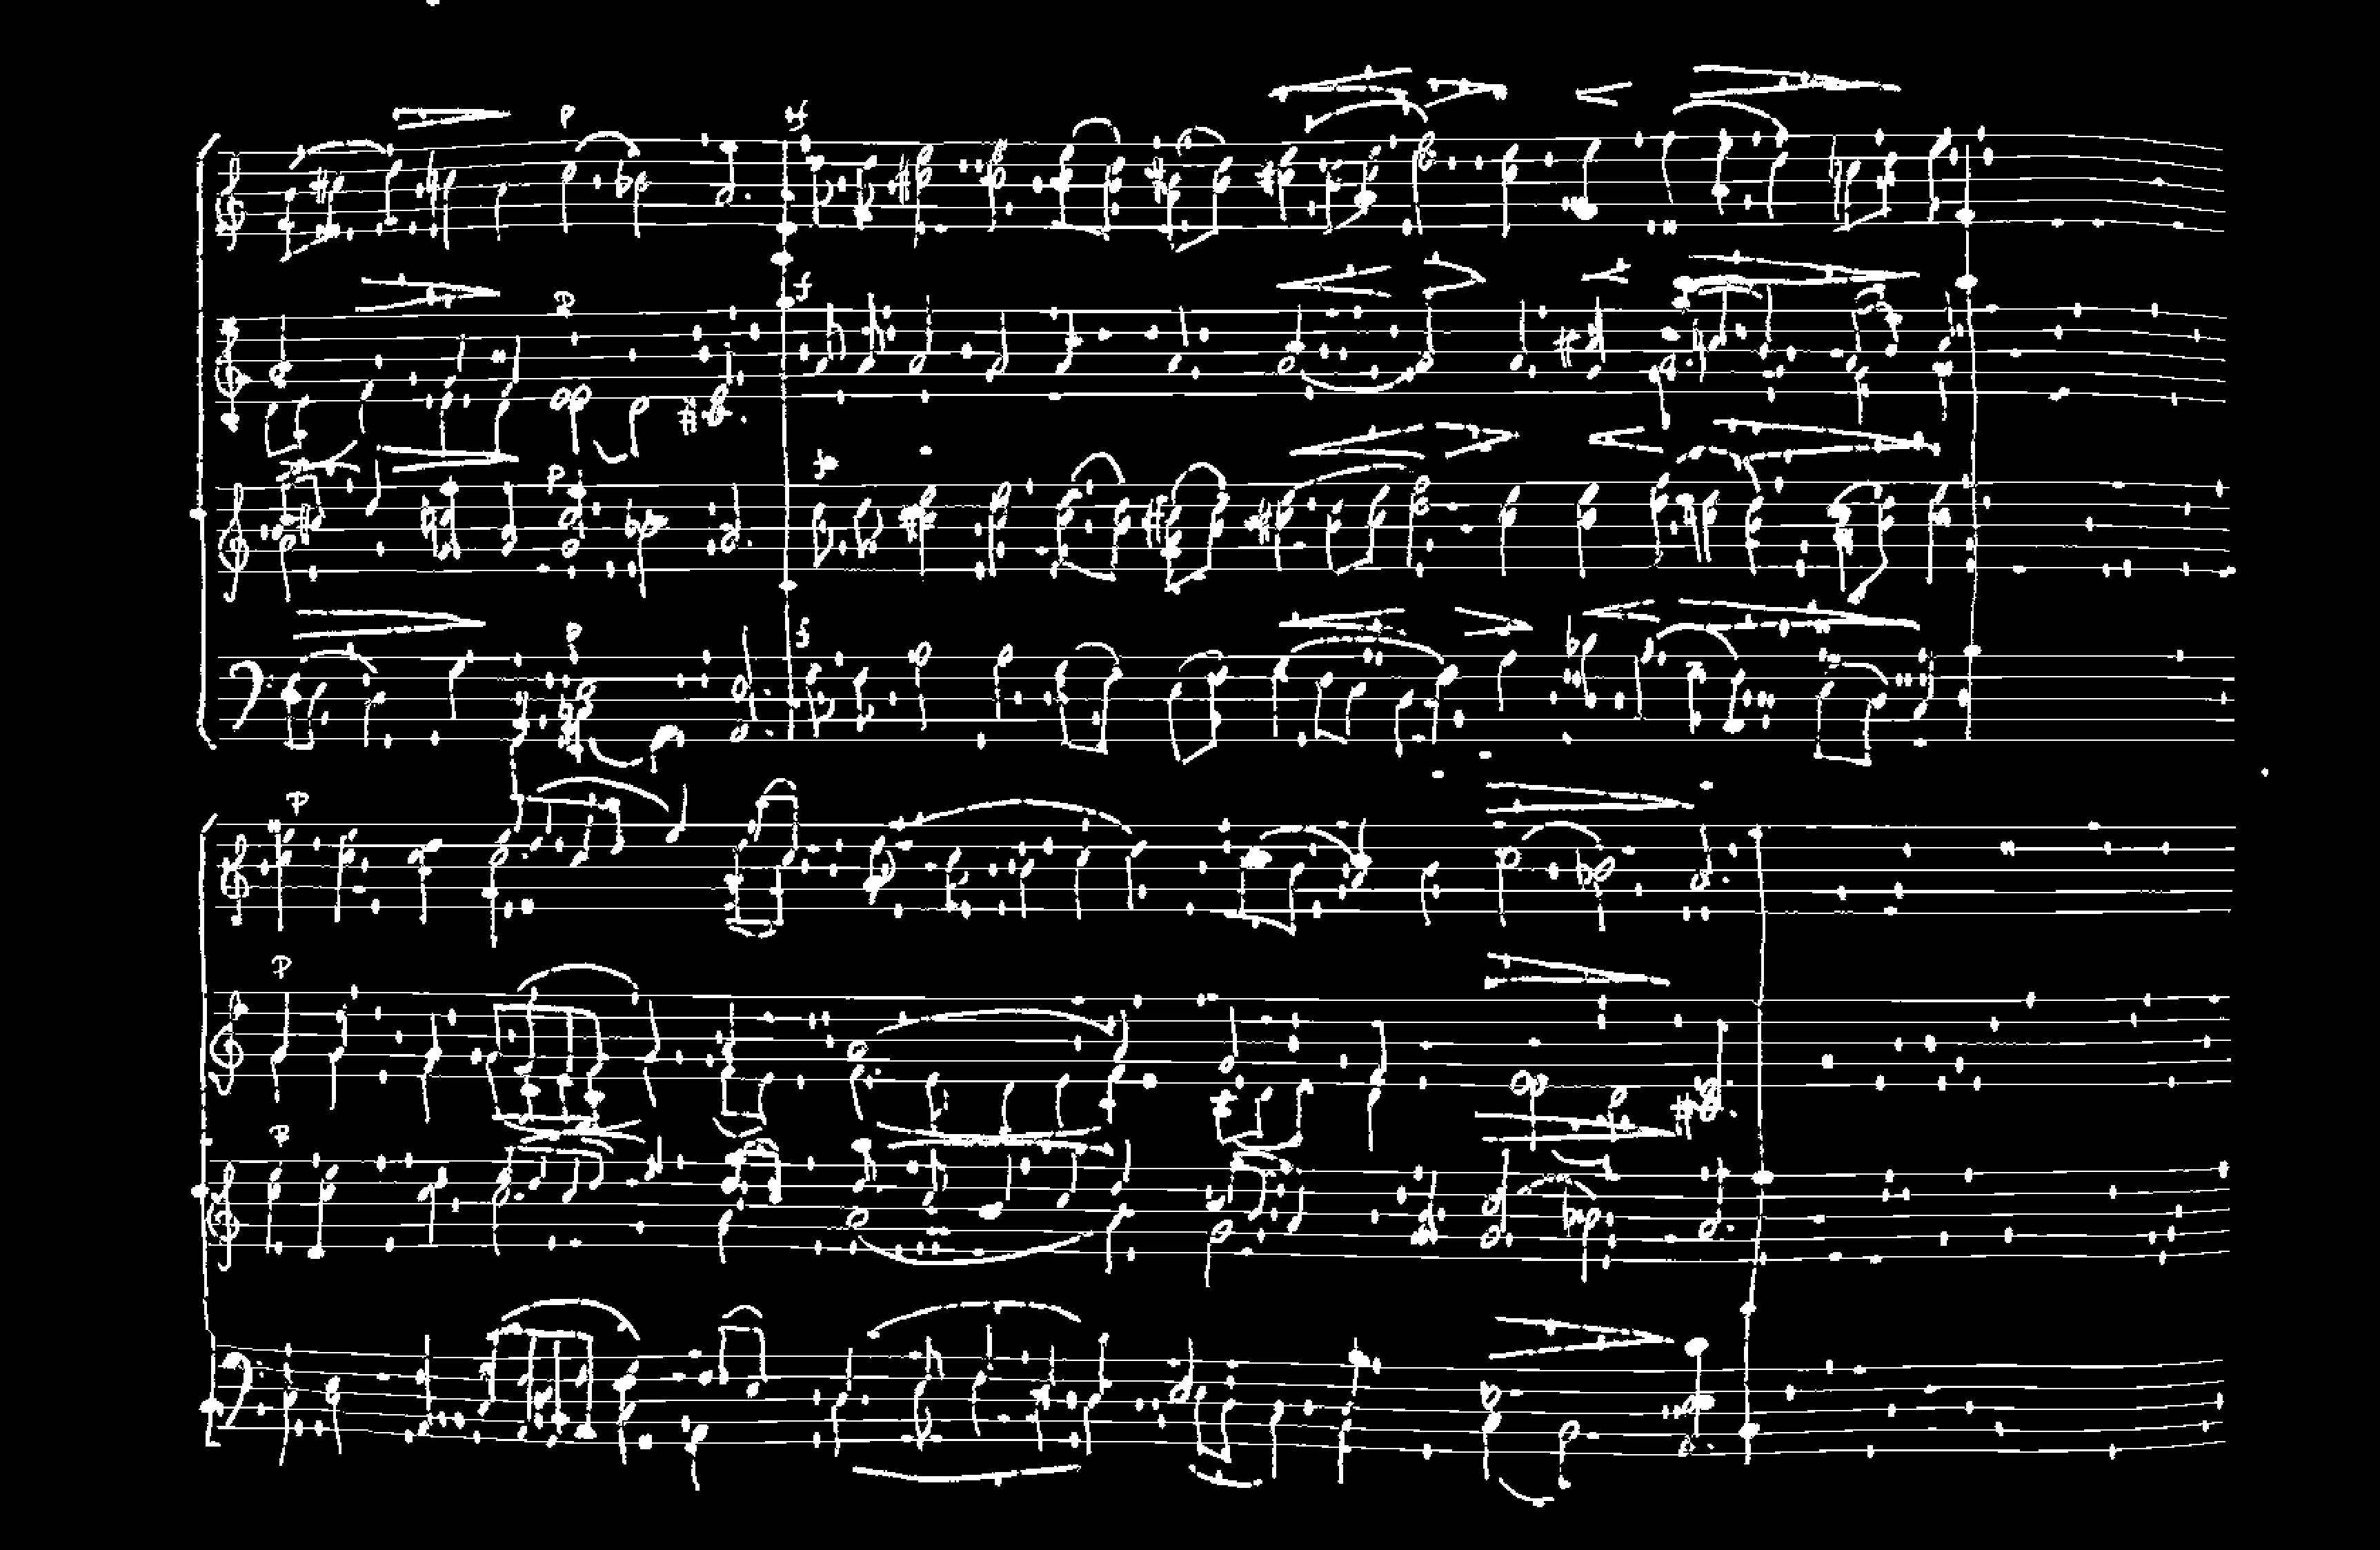 p sf
p f
p f
p f
P
P
P